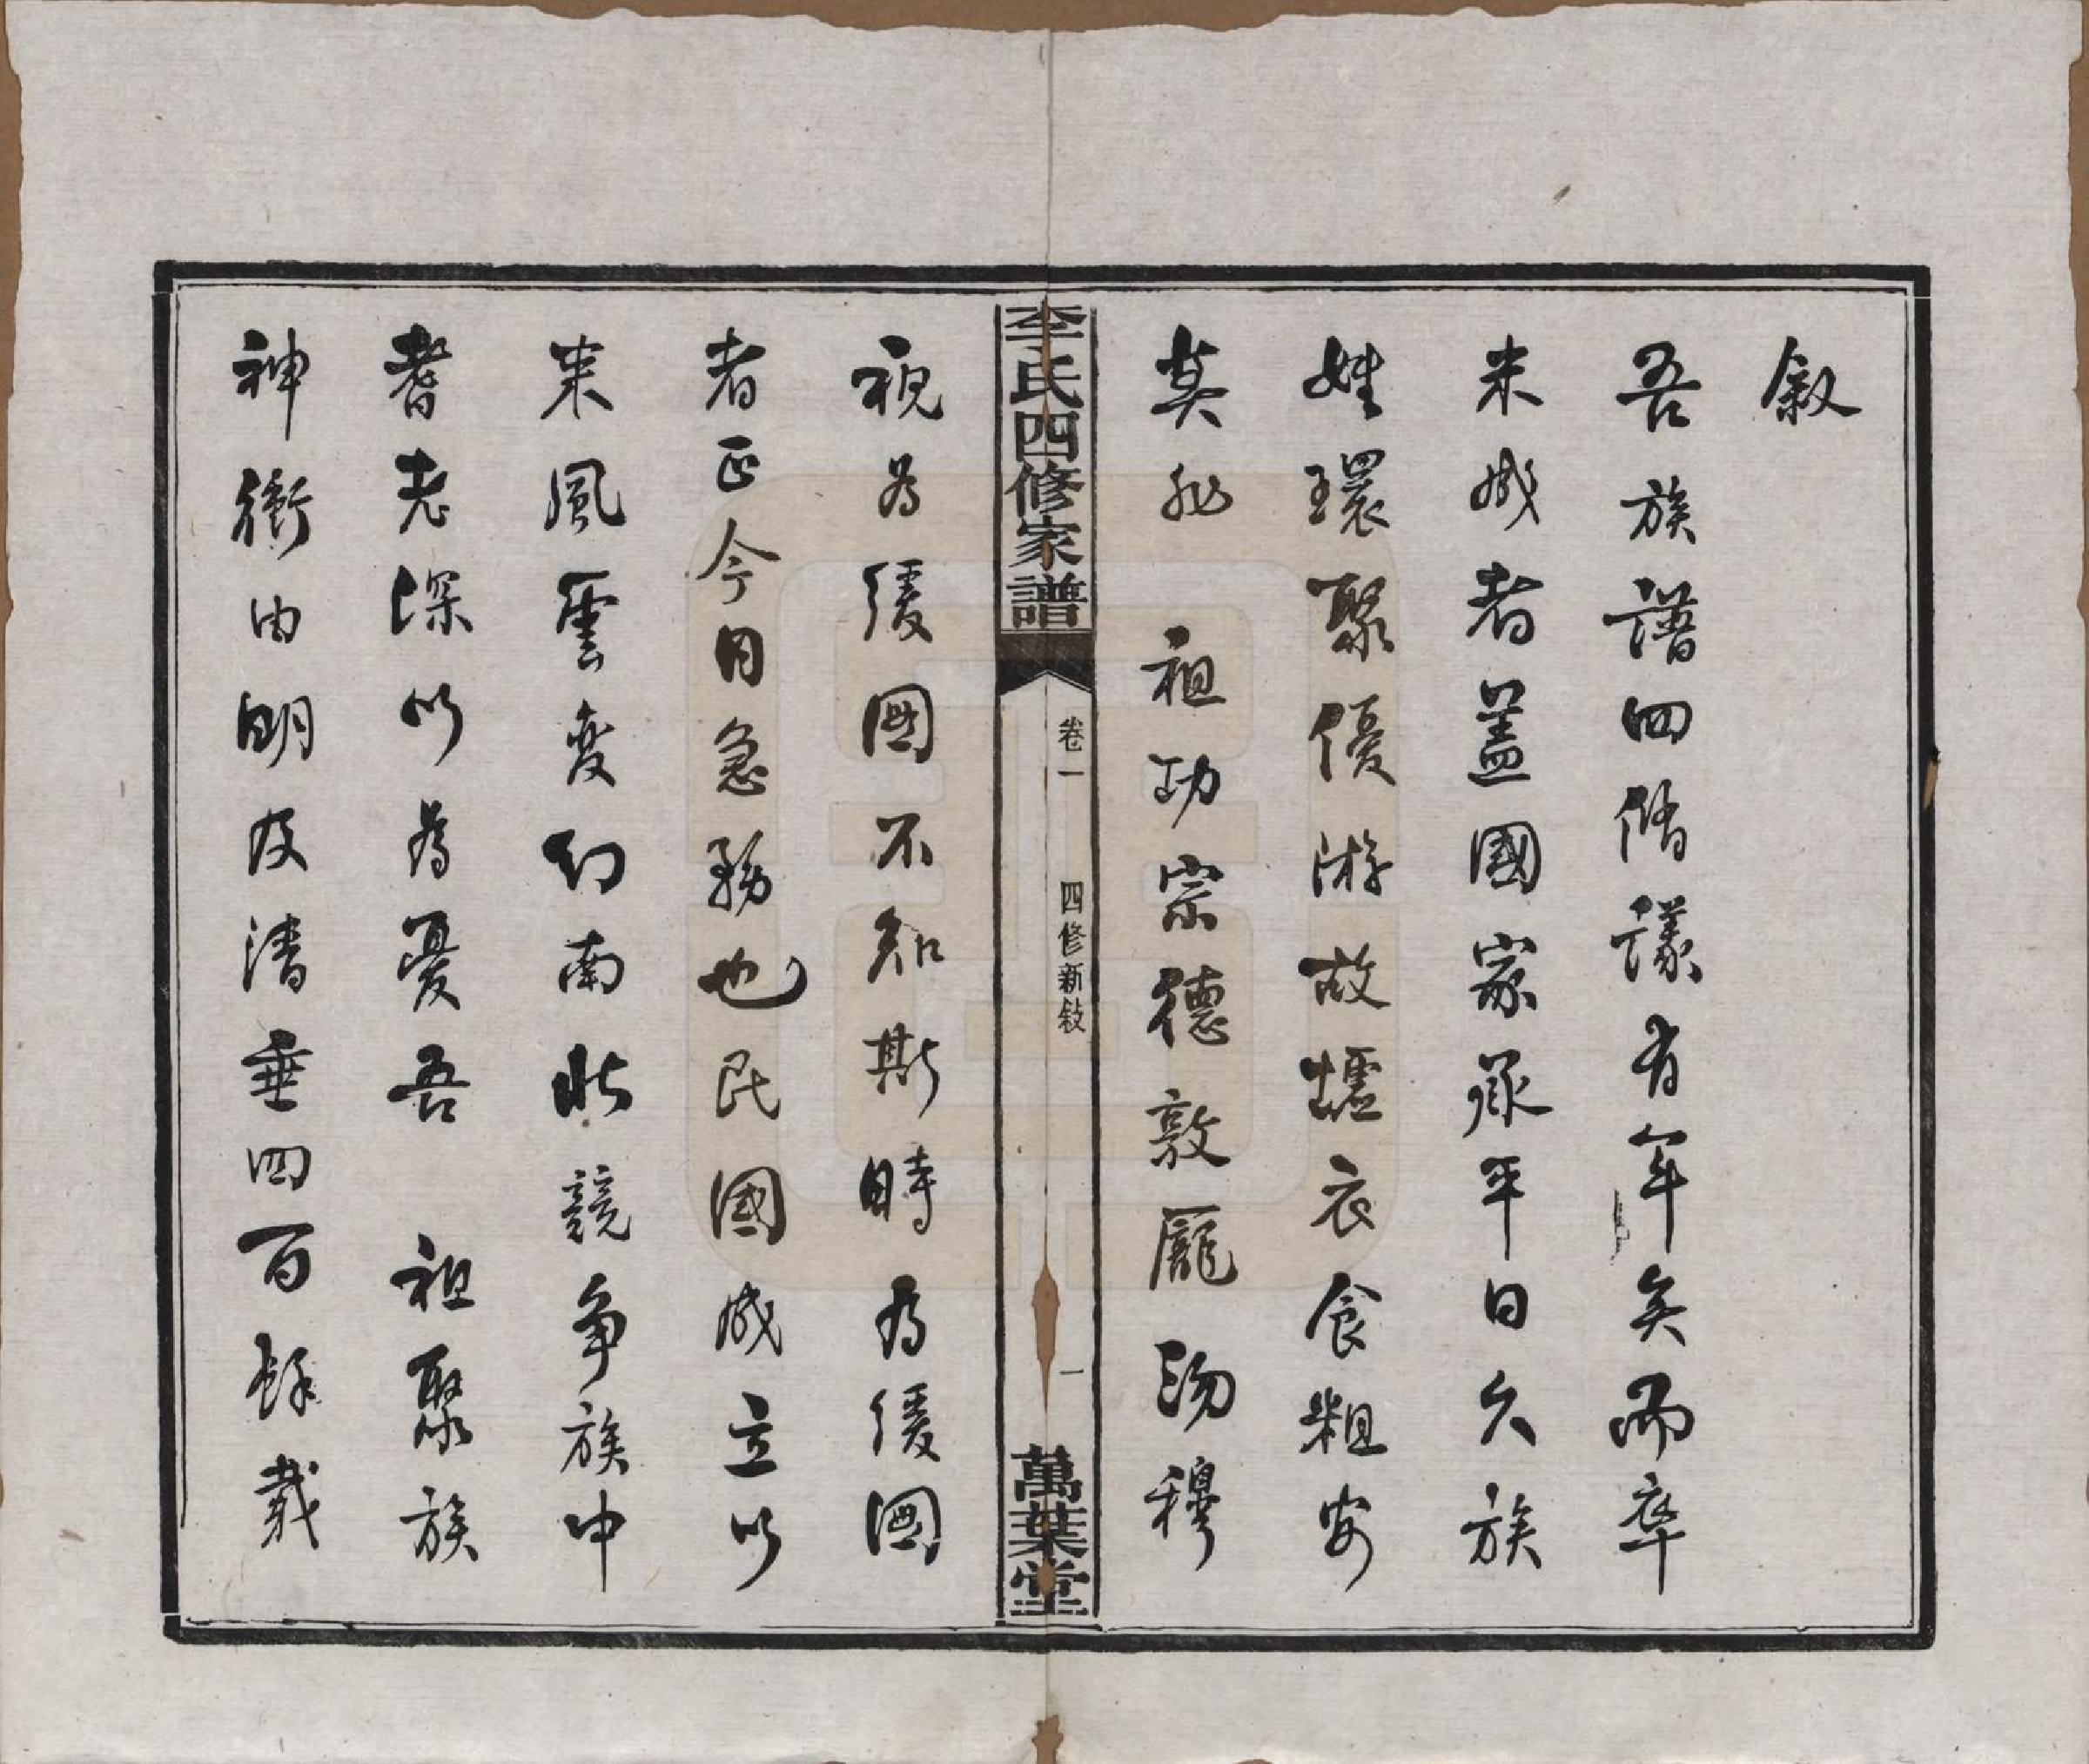 叙
吾族譜四修議有年矣而卒
未成者蓋國家承平日久族
姓環聚優游故墟衣食粗安
莫非 祖功宗德敦龐沕穆
李氏四修家譜
卷一
四修新敍
一
萬葉堂
視為緩圖不知斯時為緩圖
者正今日急務也民國成立以
来風雲变幻南北競争族中
耆老深以為憂吾 祖聚族
神衝由明及清垂四百餘載